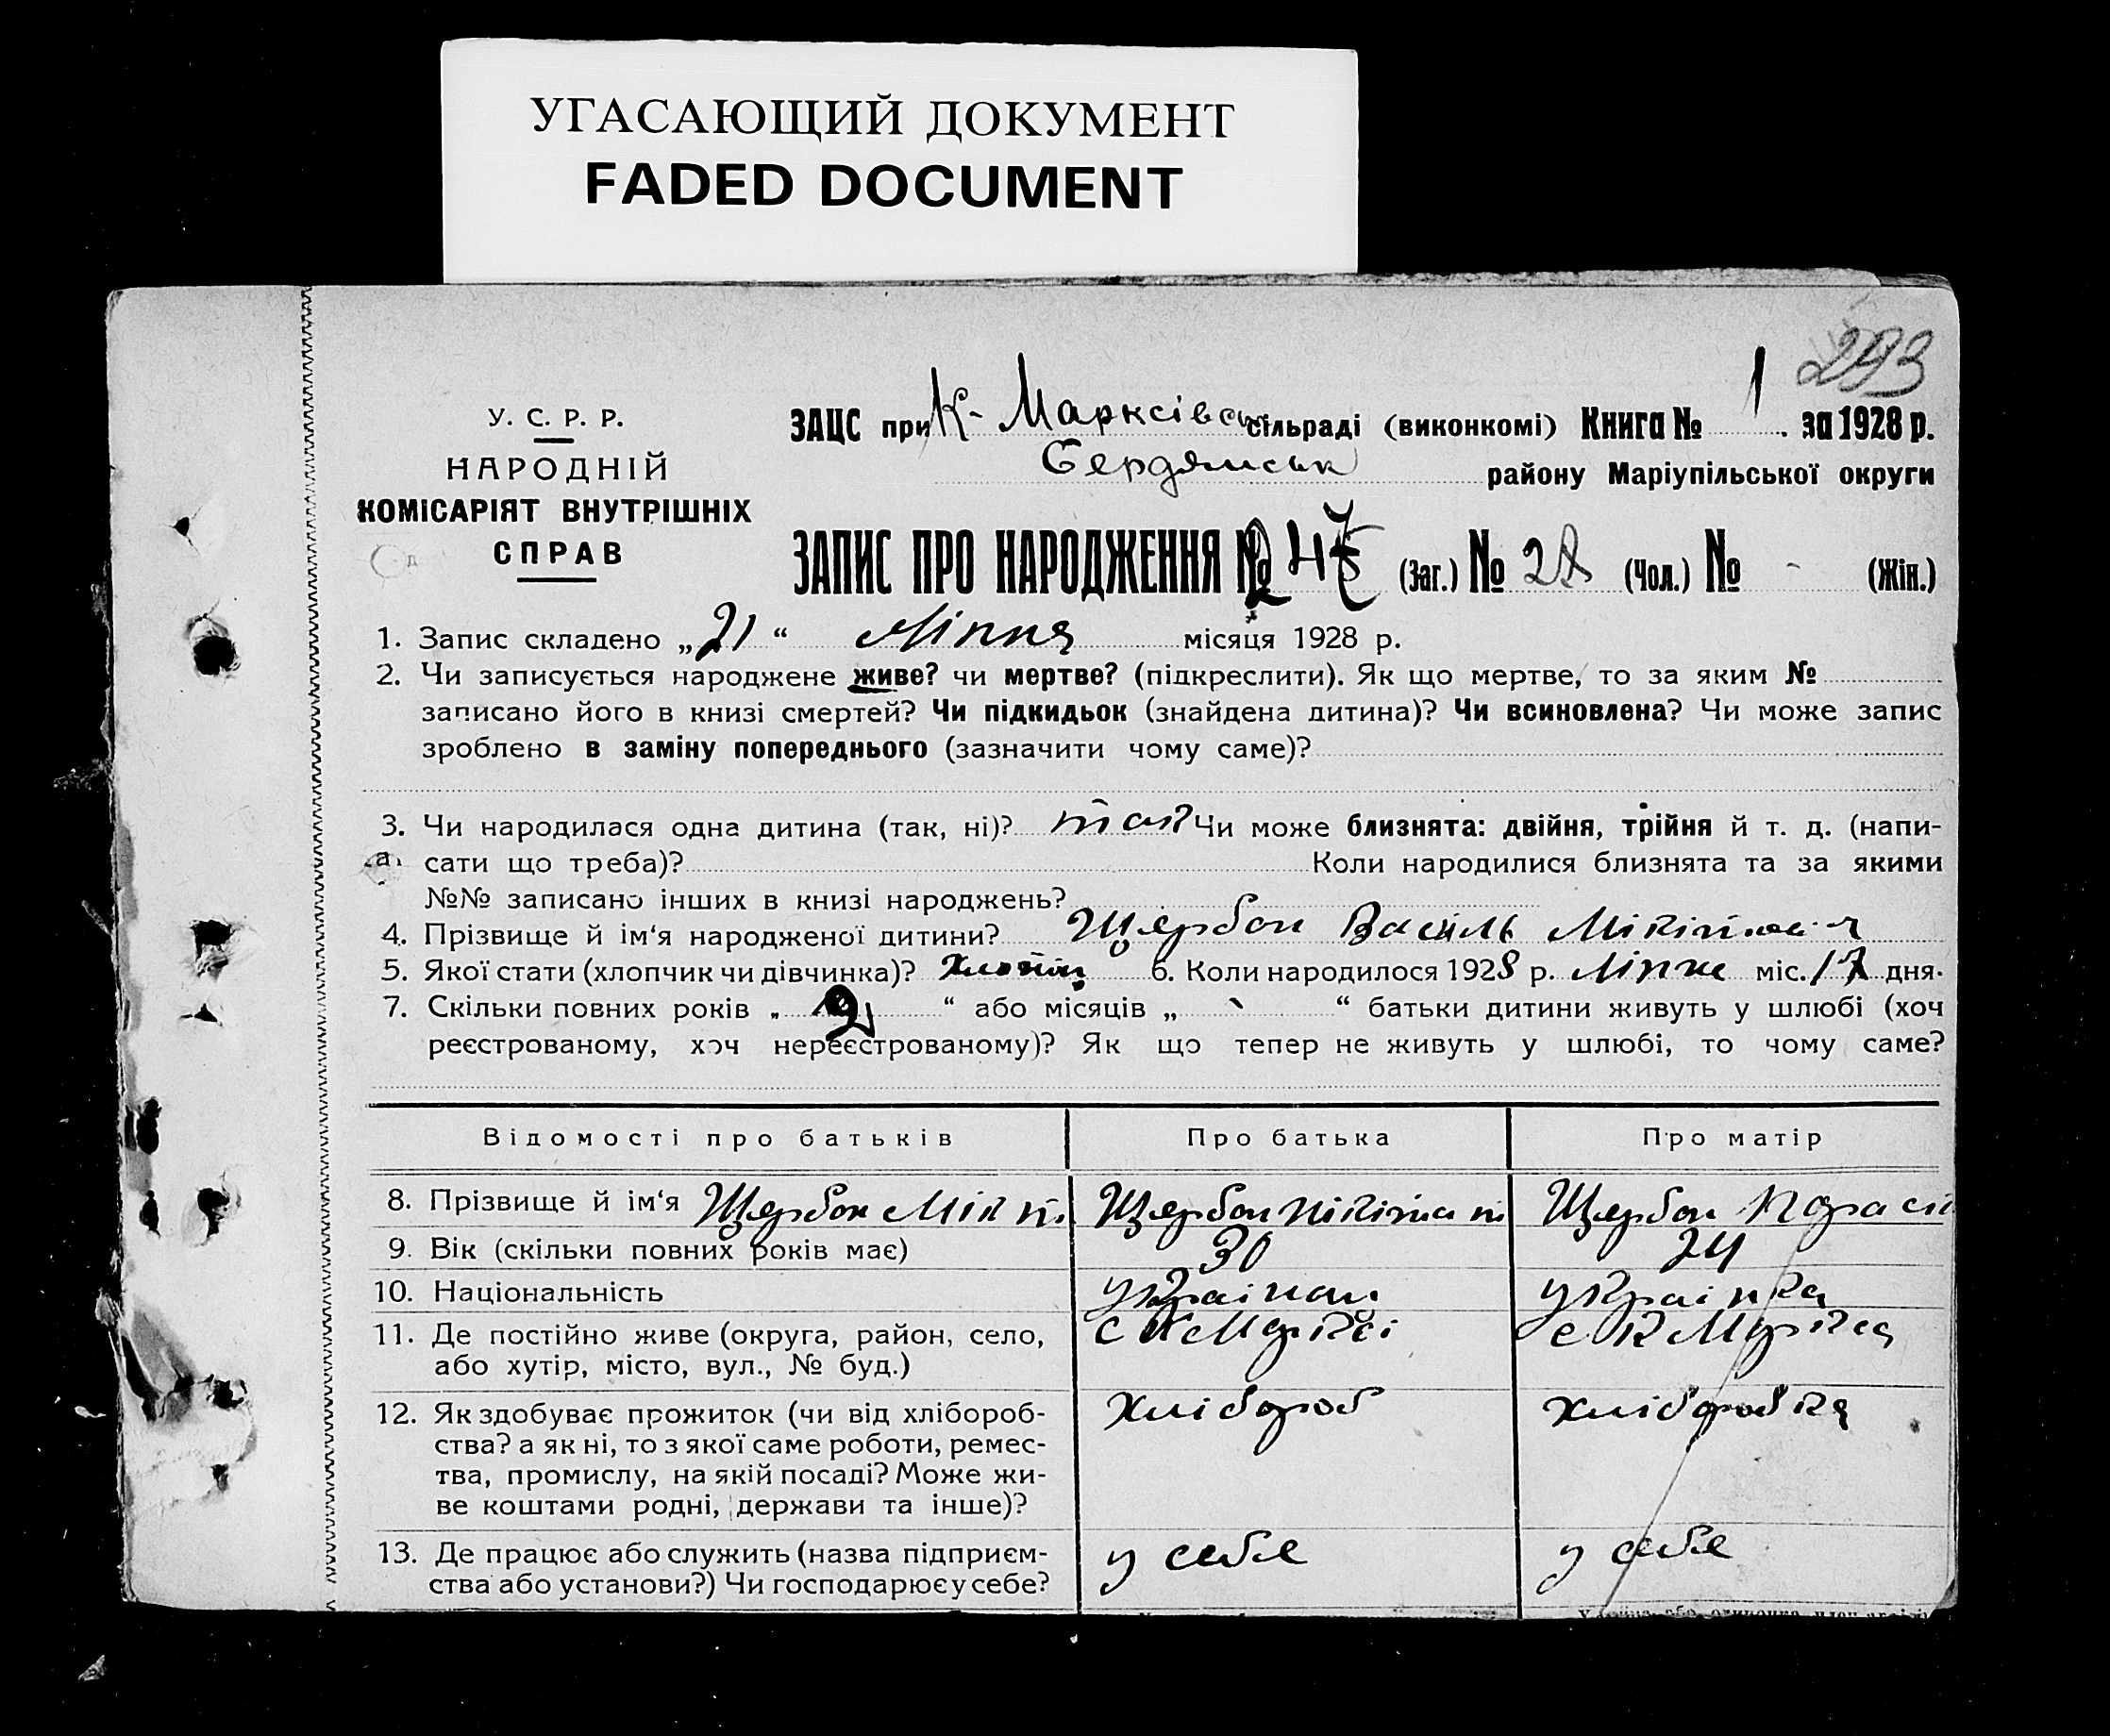 УГАСАЮЩИЙ ДОКУМЕНТ
FADED DOCUMENT
293
У. С. Р. Р.
НАРОДНІЙ
КОМІСАРІЯТ ВНУТРІШНІХ
СПРАВ
ЗАЦС при К-Марксівск сільраді (виконкомі) Книга № 1 за 1928 р.
Бердянськ району Маріупільської округи
ЗАПИС ПРО НАРОДЖЕННЯ № 247 (Заг.) № 28 (Чол.) № - (Жін.)
1. Запис складено „21“ Ліпня місяця 1928 р.
2. Чи записується народжене живе? чи мертве? (підкреслити). Як що мертве, то за яким №
записано його в книзі смертей? Чи підкидьок (знайдена дитина)? Чи всиновлена? Чи може запис
зроблено в заміну попереднього (зазначити чому саме)?
3. Чи народилася одна дитина (так, ні)? так Чи може близнята: двійня, трійня й т. д. (напи-
сати що треба)? Коли народилися близнята та за якими
№№ записано інших в книзі народжень?
4. Прізвище й ім‘я народженої дитини? Щербак Василь
5. Якої стати (хлопчик чи дівчинка)? 6. Коли народилося 1928 р. Ліпня міс. 17 дня.
7. Скільки повних років „ 2 “ або місяців „ - “ батьки дитини живуть у шлюбі (хоч
реєстрованому, хоч нереєстрованому)? Як що тепер не живуть у шлюбі, то чому саме?
Відомості про батьків Про батька Про матір
8. Прізвище й ім‘я Щербак Мікіт Щербак Нікіта Щербак Параск
9. Вік (скільки повних років має) 30 24
10. Національність українец українка
11. Де постійно живе (округа, район, село, с К Маркса с К Маркса
або хутір, місто, вул., № буд.)
12. Як здобуває прожиток (чи від хлібороб- хлібороб хліборобка
ства? а як ні, то з якої саме роботи, ремес-
тва, промислу, на якій посаді? Може жи-
ве коштами родні, держави та інше)?
13. Де працює або служить (назва підприєм- у себе у себе
ства або установи?) Чи господарює у себе?